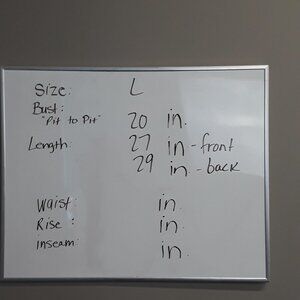 Size: L
Bust:
"Pit to Pit" 20 in.
Length: 27 in - front
29 in. - back
Waist: in.
Rise: in.
inseam: in.